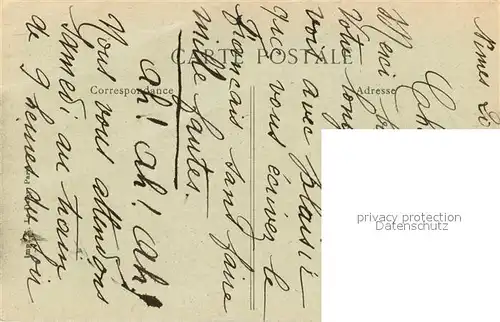 CARTE POSTALE
Correspondance
Adresse
Nîmes
Merci
votre
voit avec plaisir
que vous écrivez le
français sans faire
mille fautes.
ah! ah! ah!
Nous vous attendons
Samedi au train
de 9 heures du soir
privacy protection
Datenschutz